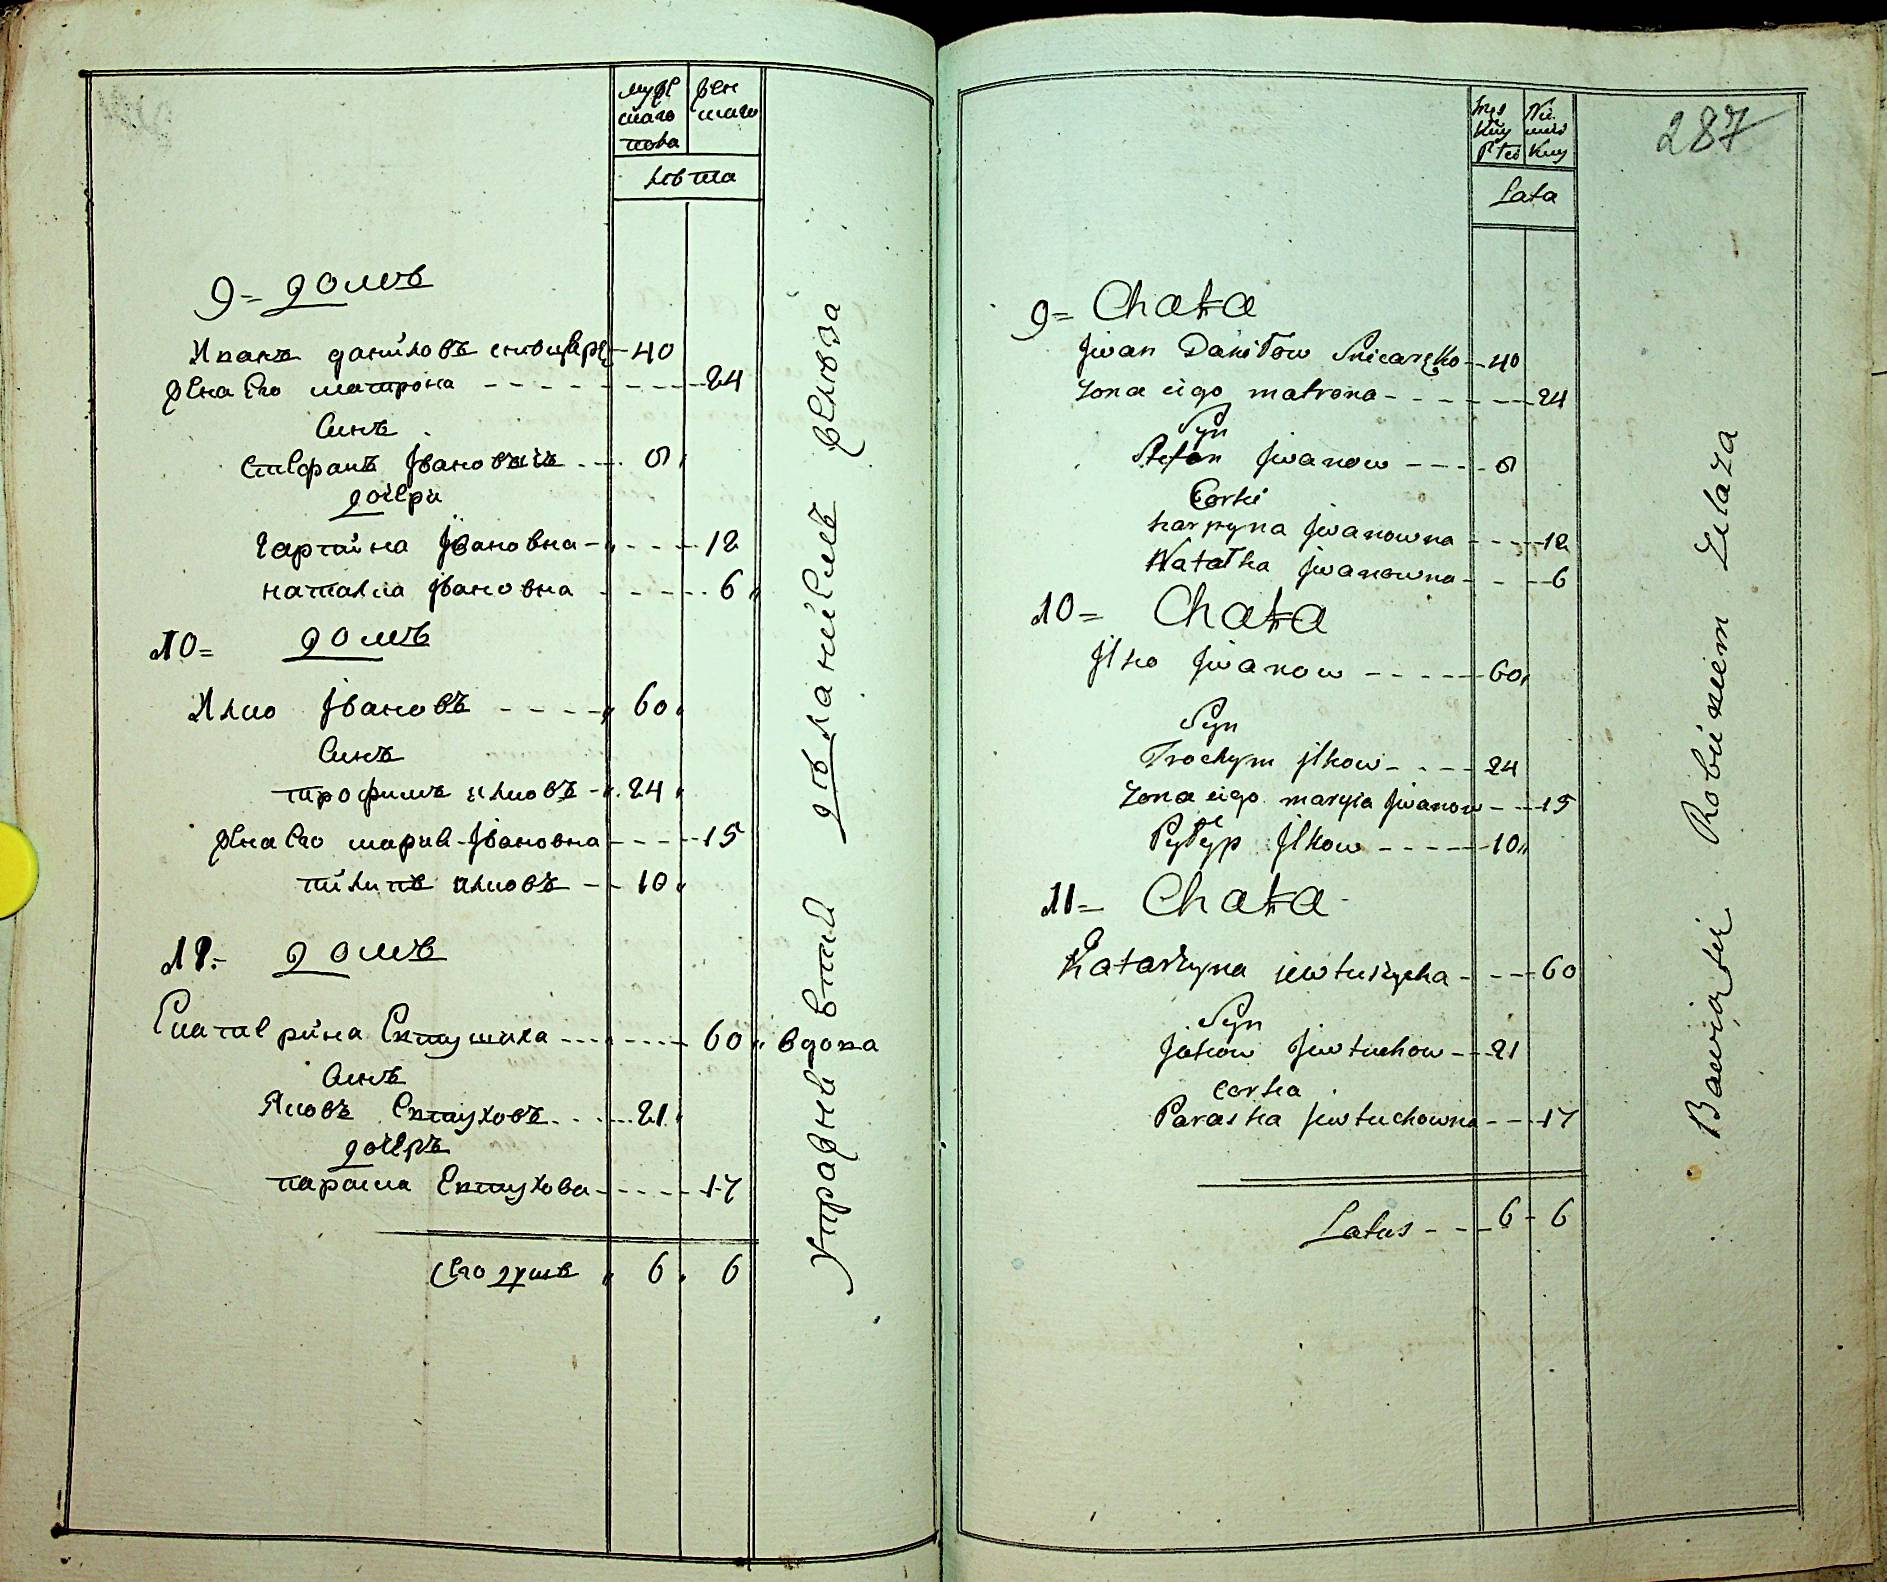 мужескаго пола
женскаго
лѣта
9= домъ
Иванъ даниловъ 40
жена Его матрона 24
Синъ
Стефанъ Івановъ 8
дочери
Івановна 12
наталка Івановна 6
10= домъ
Илко Івановъ 60
Синъ
трофимъ илковъ 24
жена Его мария Івановна 15
пилипъ илковъ 10
11= домъ
Екатерина Евтушиха 60 вдова
Синъ
Яковъ Евтуховъ 21
дочеръ
параска Евтухова 17
Его душъ 6 6
Упражни вший дѣланиемъ железа
męskiey płci
Nie wieś kiey
Lata
287
9= Chata
Jwan Daniłow 40
Zona eigo matrona 24
Syn
Stefan Jwanow 8
Corki
Jwanowna 12
Natałka Jwanowna 6
10= Chata
Jlko Jwanow 60
Syn
Trochym jlkow 24
Zona eigo maryia Jwanow 15
Pyłyp Jlkow 10
11= Chata
Katarzyna jewtuszycha 60
Syn
Jakow Jewtuchow 21
corka
Paraska Jewtuchowna 17
Latus 6 6
Bawiąsię Robieniem Zelaza